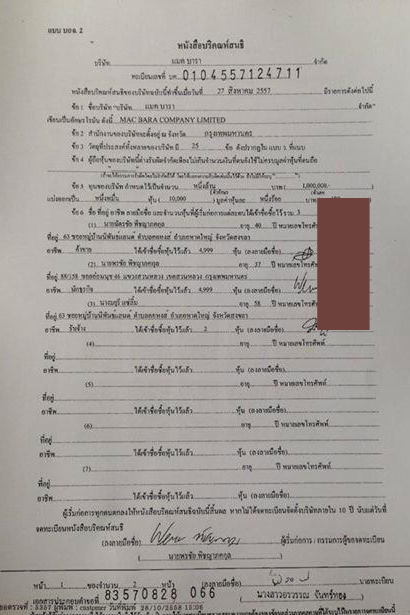 แบบ บอจ. 2
หนังสือบริคณห์สนธิ
บริษัท แมค บารา จำกัด
ทะเบียนเลขที่ บค. 0104557124711
หนังสือบริคณห์สนธิของบริษัทฉบับนี้ทำขึ้นเมื่อวันที่ 27 สิงหาคม 2557 มีรายการดังต่อไปนี้
ข้อ 1 ชื่อบริษัท "บริษัท แมค บารา จำกัด"
เขียนเป็นอักษรโรมัน ดังนี้ MAC BARA COMPANY LIMITED
ข้อ 2 สำนักงานของบริษัทจะตั้งอยู่ ณ จังหวัด กรุงเทพมหานคร
ข้อ 3 วัตถุที่ประสงค์ทั้งหลายของบริษัท มี 25 ข้อ ดังปรากฏใน แบบ ว. ที่แนบ
ข้อ 4 ผู้ถือหุ้นของบริษัทนี้ต่างรับผิดจำกัดเพียงไม่เกินจำนวนเงินที่ตนยังใช้ไม่ครบมูลค่าหุ้นที่ตนถือ
ข้อ 5 ทุนของบริษัท กำหนดไว้เป็นจำนวน หนึ่งล้าน บาท ( 1,000,000.- )
แบ่งออกเป็น หนึ่งหมื่น หุ้น ( 10,000 ) มูลค่าหุ้นละ หนึ่งร้อย บาท
ข้อ 6 ชื่อ ที่อยู่ อาชีพ ลายมือชื่อ และจำนวนหุ้นที่ผู้เริ่มก่อการแต่ละคนได้เข้าชื่อซื้อไว้ รวม 3
(1) อายุ 40 ปี หมายเลขโทรศัพท์
ที่อยู่ 63 จังหวัดสงขลา
อาชีพ ค้าขาย ได้เข้าชื่อซื้อหุ้นไว้แล้ว 4,999 หุ้น (ลงลายมือชื่อ)
(2) นายพรชัย พิชญาภคกุล อายุ 37 ปี หมายเลขโทรศัพท์
ที่อยู่ 88/158 กรุงเทพมหานคร
อาชีพ นักธุรกิจ ได้เข้าชื่อซื้อหุ้นไว้แล้ว 4,999 หุ้น (ลงลายมือชื่อ)
(3) อายุ 58 ปี หมายเลขโทรศัพท์
ที่อยู่ 63 จังหวัดสงขลา
อาชีพ รับจ้าง ได้เข้าชื่อซื้อหุ้นไว้แล้ว 2 หุ้น (ลงลายมือชื่อ)
(4) อายุ ปี หมายเลขโทรศัพท์
ที่อยู่
อาชีพ ได้เข้าชื่อซื้อหุ้นไว้แล้ว หุ้น (ลงลายมือชื่อ)
(5) อายุ ปี หมายเลขโทรศัพท์
ที่อยู่
อาชีพ ได้เข้าชื่อซื้อหุ้นไว้แล้ว หุ้น (ลงลายมือชื่อ)
(6) อายุ ปี หมายเลขโทรศัพท์
ที่อยู่
อาชีพ ได้เข้าชื่อซื้อหุ้นไว้แล้ว หุ้น (ลงลายมือชื่อ)
(7) อายุ ปี หมายเลขโทรศัพท์
ที่อยู่
อาชีพ ได้เข้าชื่อซื้อหุ้นไว้แล้ว หุ้น (ลงลายมือชื่อ)
ผู้เริ่มก่อการทุกคนตกลงให้หนังสือบริคณห์สนธิฉบับนี้สิ้นผล หากไม่ได้จดทะเบียนจัดตั้งบริษัทภายใน 10 ปี นับแต่วันที่
จดทะเบียนหนังสือบริคณห์สนธิ
(ลงลายมือชื่อ) ผู้เริ่มก่อการ / กรรมการผู้ขอจดทะเบียน
นายพรชัย พิชญาภคกุล
หน้า 1 ของจำนวน 2 หน้า (ลงลายมือชื่อ) นายทะเบียน
เอกสารประกอบคำขอที่ 83570828 066 นางสาวอรวรรณ จันทร์ทอง
customer วันที่พิมพ์ 28/10/2558 15:06